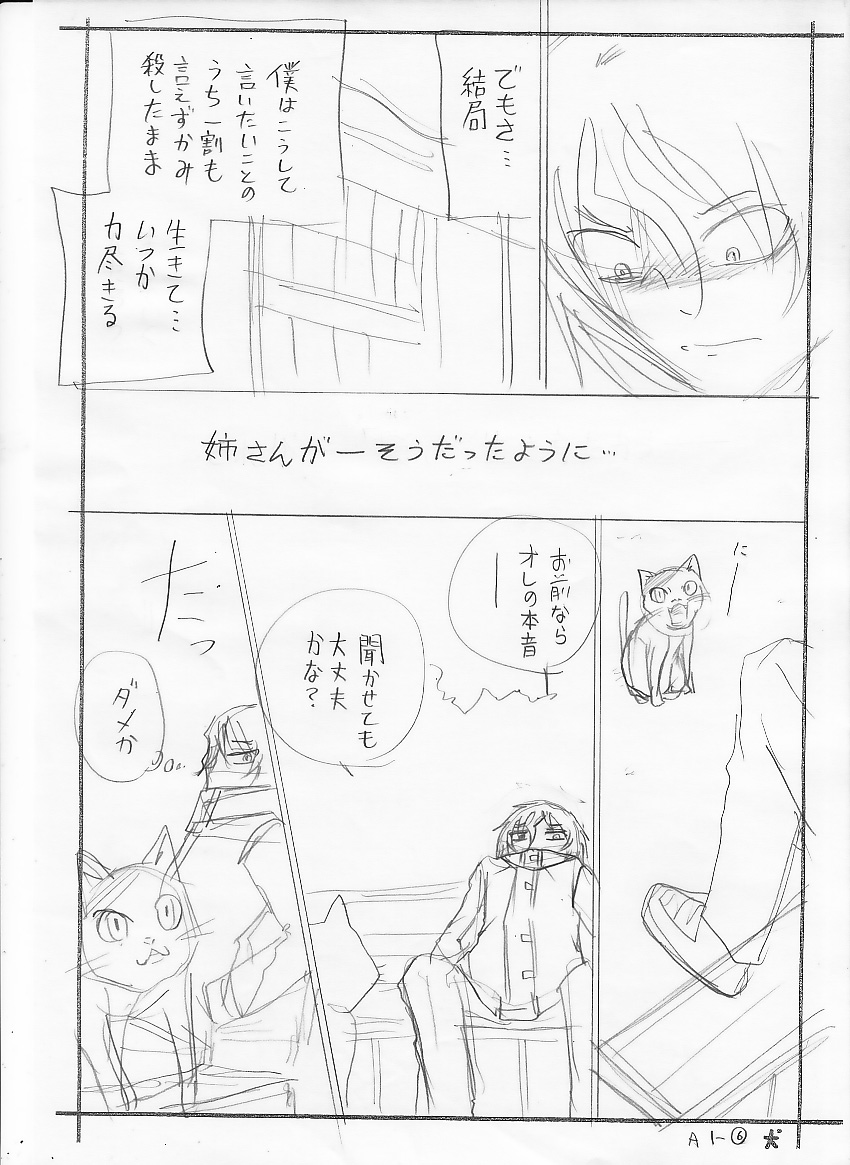 でもさ…
結局
僕はこうして
言いたいことの
うち一割も
言えずかみ
殺したまま
生きて…
いつか
力尽きる
姉さんがーそうだったように…
にー
お前なら
オレの本音
ー
聞かせても
大丈夫
かな?
だっ
ダメか
A1-⑥